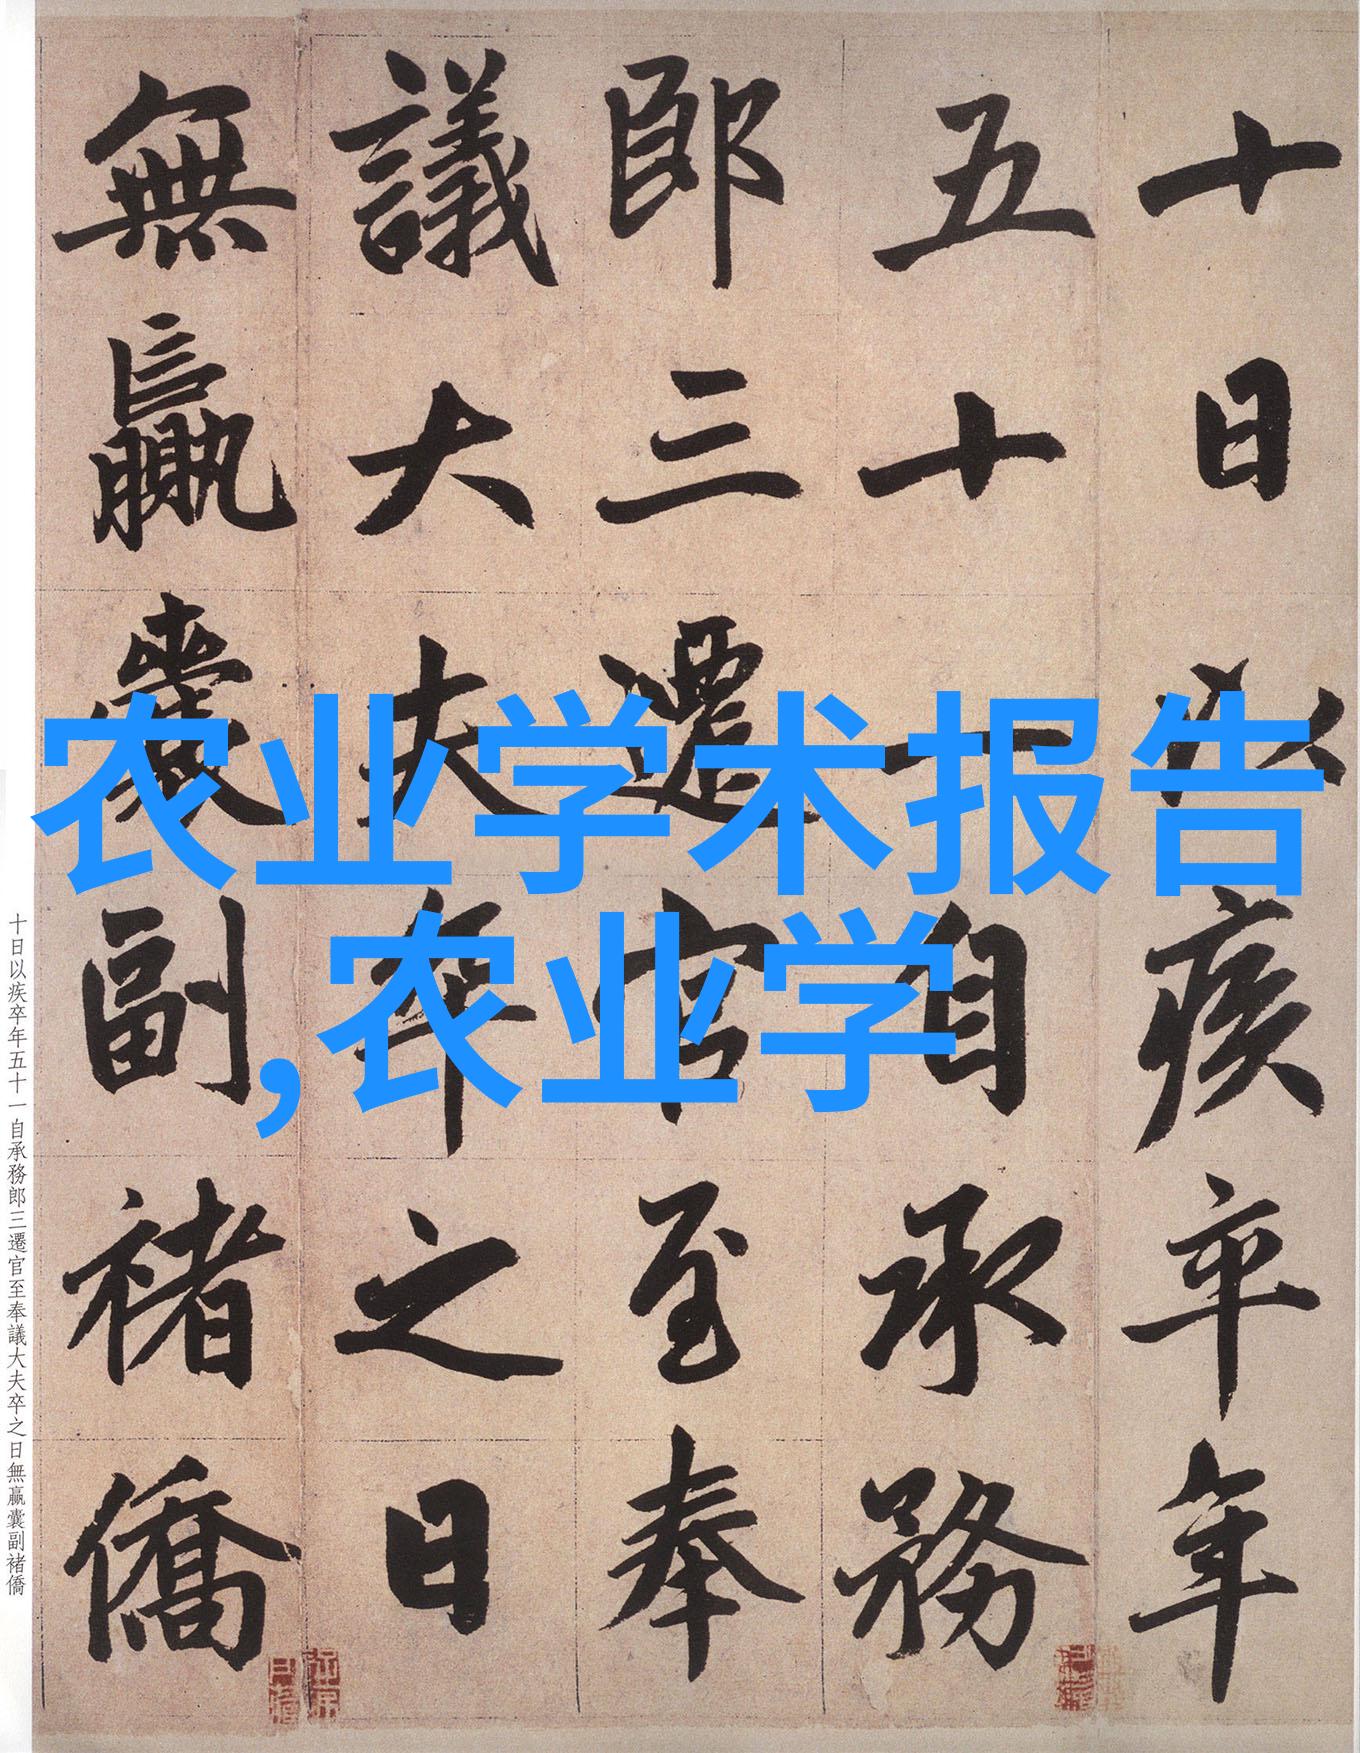 十日以疾卒年
五十一自承務
郎三遷官至奉
議大夫卒之日
無贏囊副褚僑
农业学术报告
,农业学
十日以疾卒年五十一自承務郎三遷官至奉議大夫卒之日無贏囊副褚僑